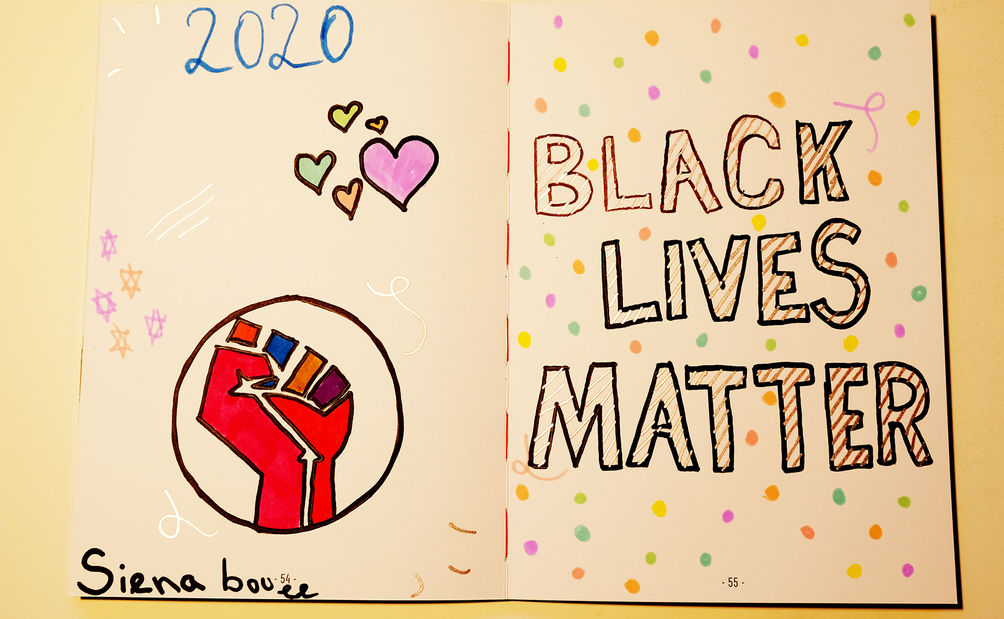 2020
Siena bouée
- 54 -
BLACK
LIVES
MATTER
- 55 -